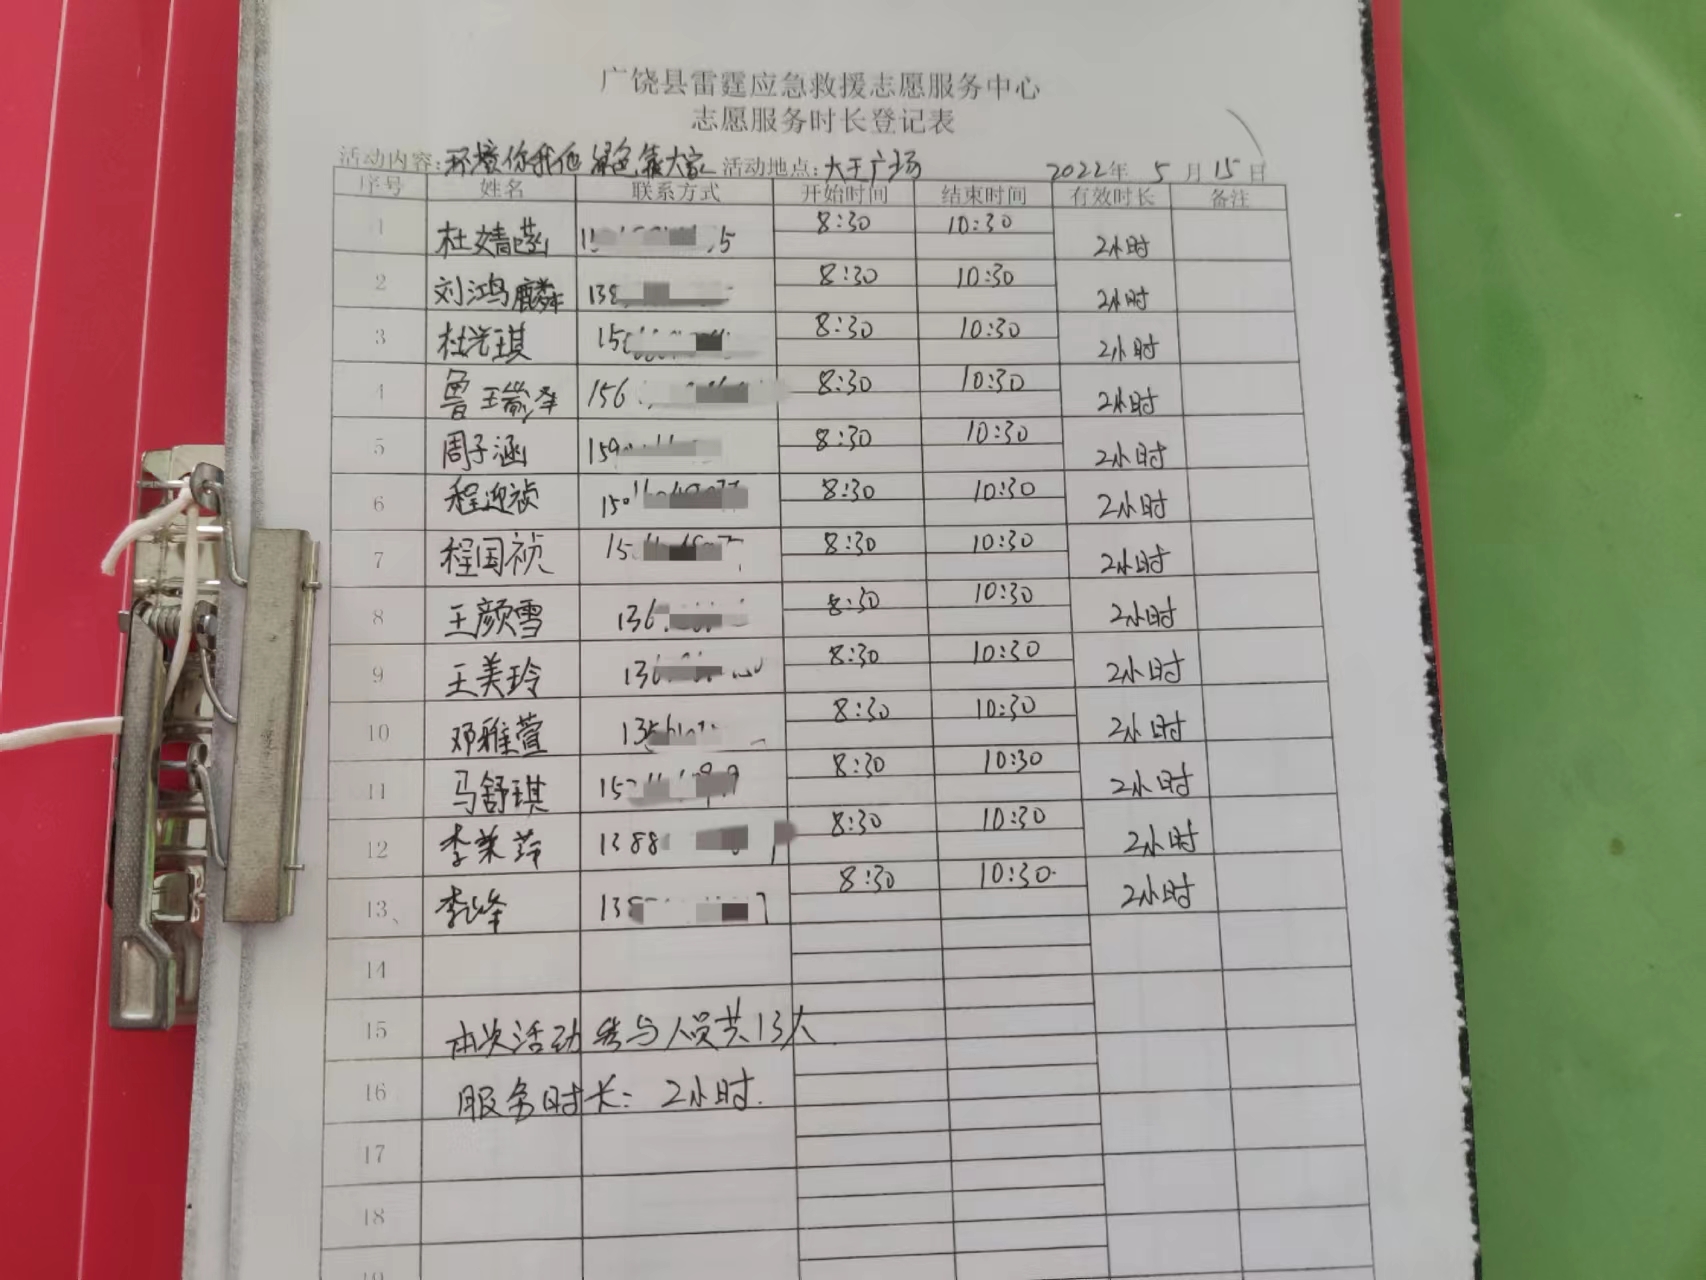 广饶县雷霆应急救援志愿服务中心
志愿服务时长登记表
活动内容:环境你我他 绿色靠大家 活动地点:大王广场 2022年 5 月 15 日
序号 姓名 联系方式 开始时间 结束时间 有效时长 备注
1 杜婧菡 8:30 10:30 2小时
2 刘鸿麟 138 8:30 10:30 2小时
3 杜光琪 15 8:30 10:30 2小时
4 鲁瑞泽 156 8:30 10:30 2小时
5 周子涵 159 8:30 10:30 2小时
6 程迎祯 150 8:30 10:30 2小时
7 程国祯 15 8:30 10:30 2小时
8 王颜雪 136 8:30 10:30 2小时
9 王美玲 136 8:30 10:30 2小时
10 邓雅萱 1356 8:30 10:30 2小时
11 马舒琪 15 8:30 10:30 2小时
12 李 萍 1388 8:30 10:30 2小时
13、 李峰 138 8:30 10:30 2小时
14
15 本次活动参与人员共13人
16 服务时长: 2小时.
17
18